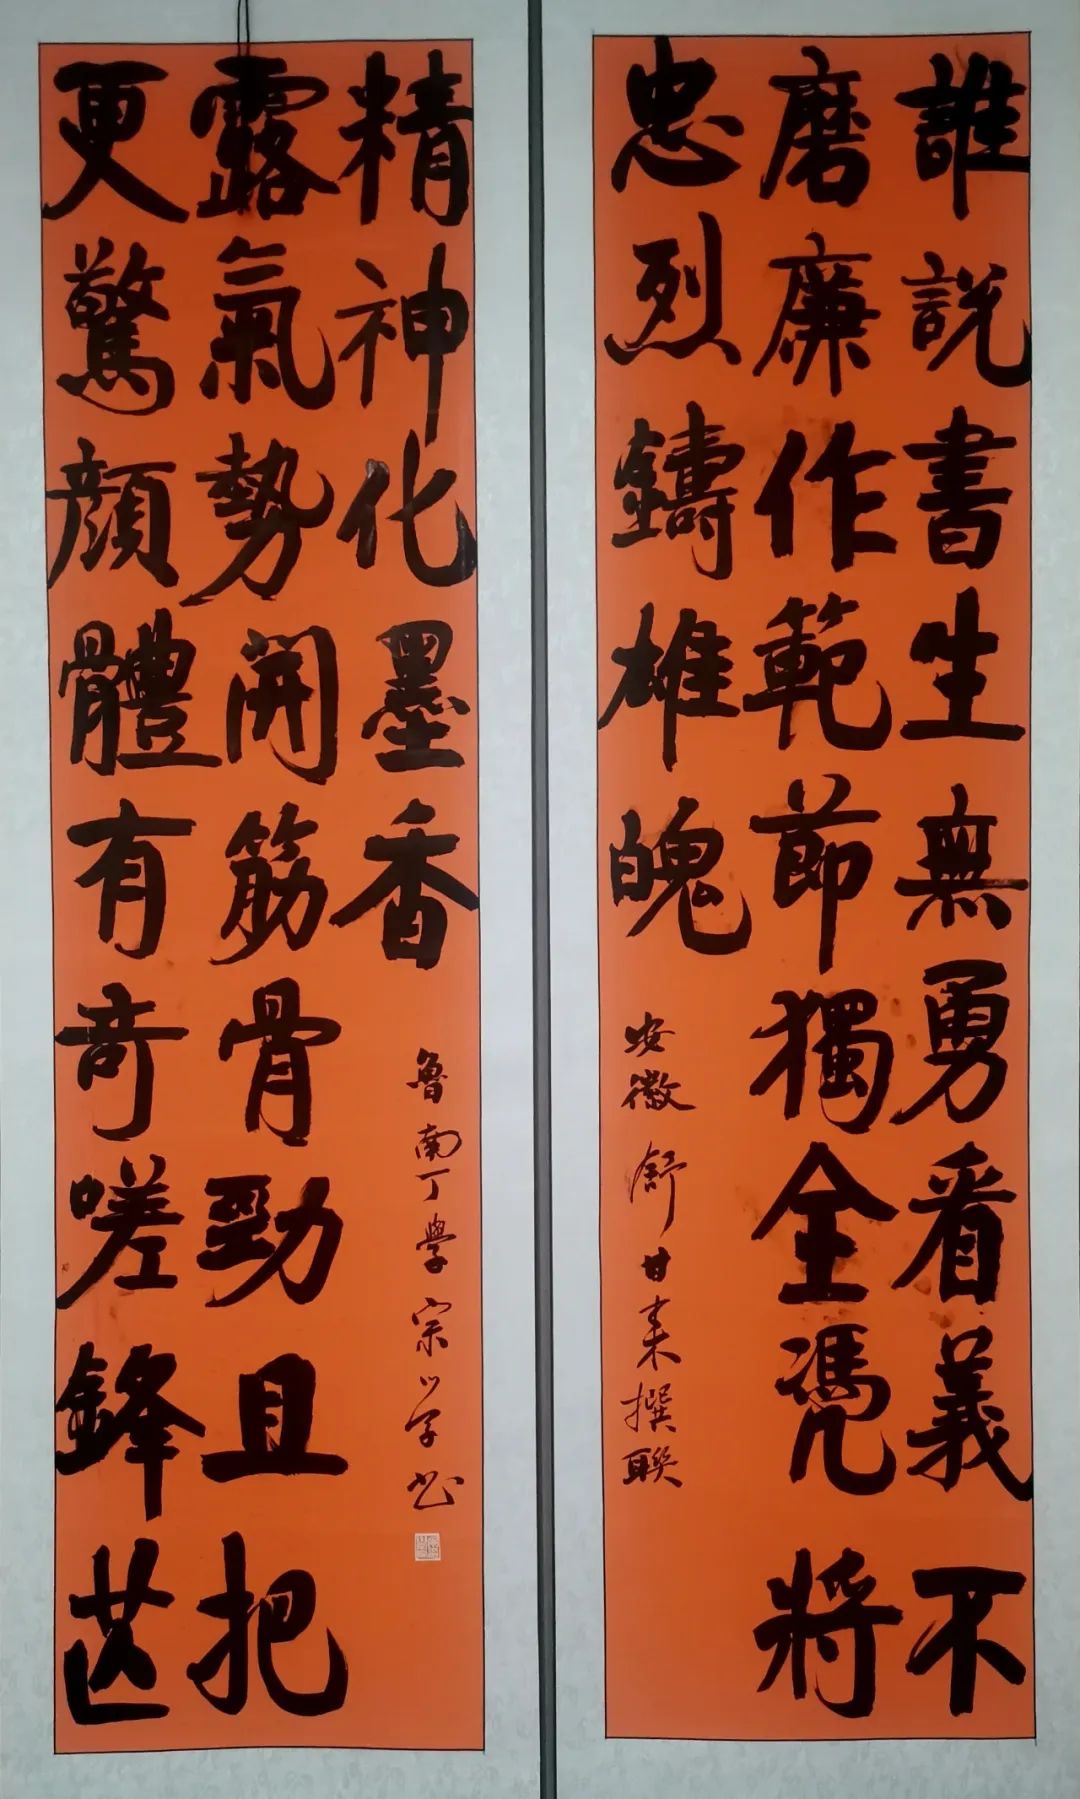 誰說書生無勇看義不
磨廉作範節獨全憑將
忠烈鑄雄魄
安徽舒甘来撰联
更驚顏體有奇嗟鋒芒
露氣勢開筋骨勁且把
精神化墨香
魯南丁學宗书